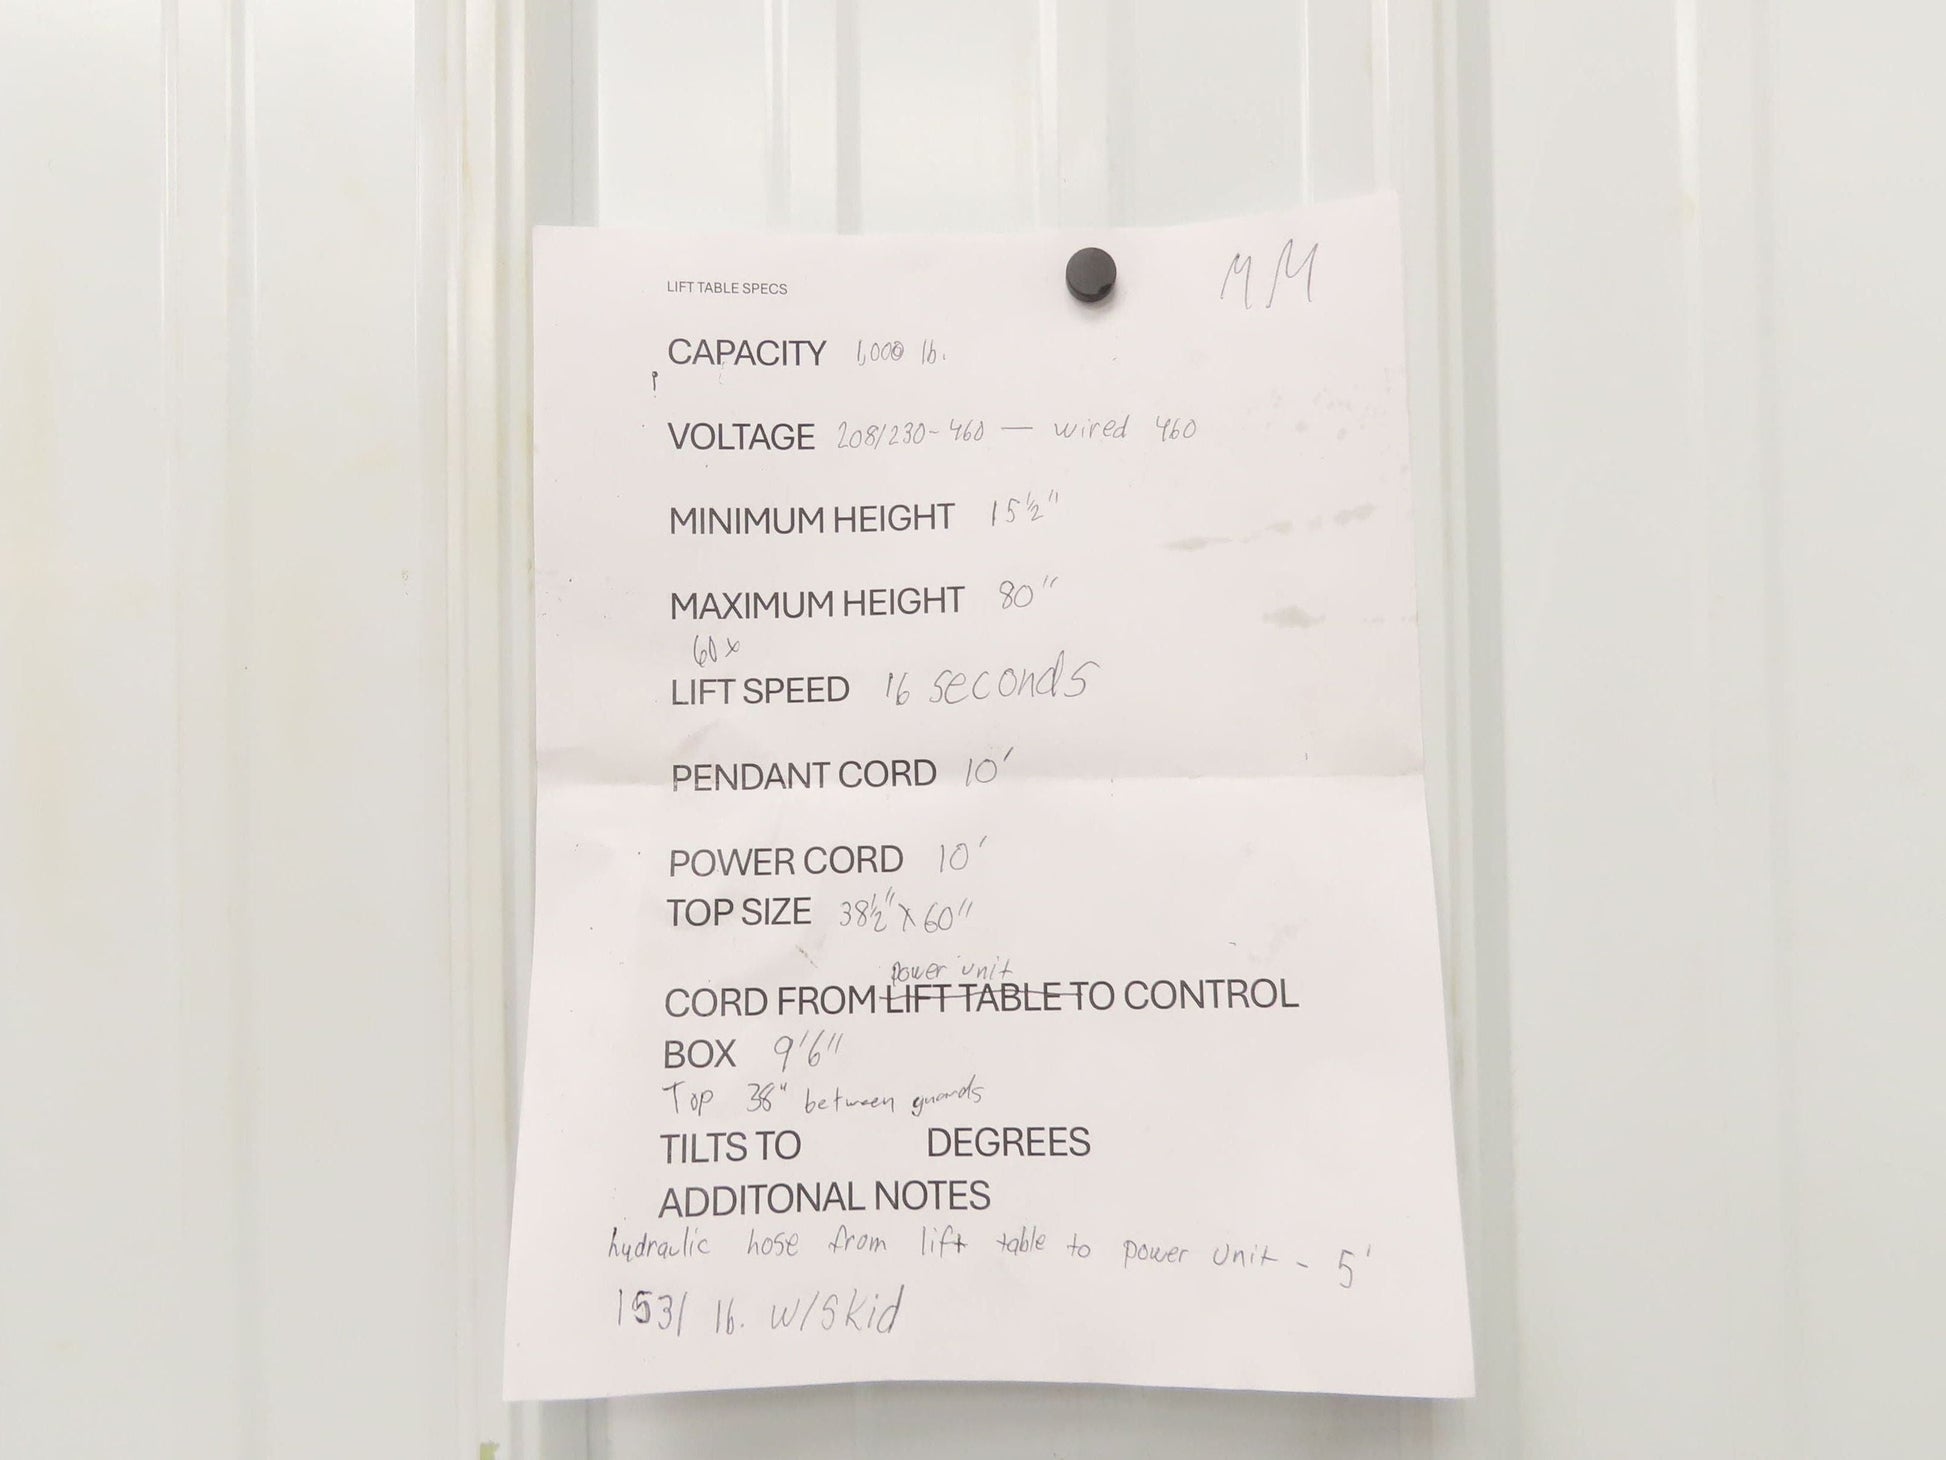 MM
LIFT TABLE SPECS
CAPACITY 1,000 lb.
VOLTAGE 208/230-460 — wired 460
MINIMUM HEIGHT 15½"
MAXIMUM HEIGHT 80"
60x
LIFT SPEED 16 seconds
PENDANT CORD 10'
POWER CORD 10'
TOP SIZE 38½" x 60"
power unit
CORD FROM LIFT TABLE TO CONTROL
BOX 9'6"
Top 38" between guards
TILTS TO DEGREES
ADDITONAL NOTES
hydraulic hose from lift table to power unit - 5'
1531 lb. w/skid